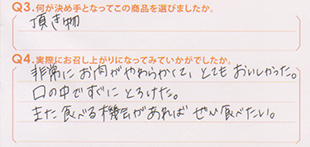 Q3.何が決め手となってこの商品を選びましたか。
頂き物
Q4.実際にお召し上がりになってみていかがでしたか。
非常にお肉がやわらかくて、とてもおいしかった。
口の中ですぐにとろけた。
また食べる機会があればぜひ食べたい。